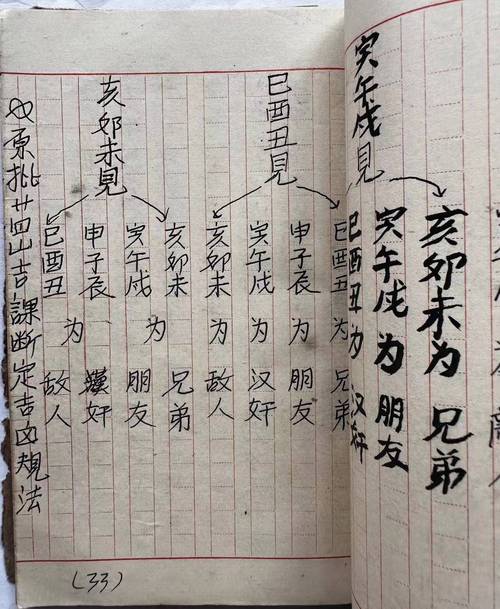 寅午戌見
亥卯未为兄弟
寅午戌为朋友
巳酉丑为汉奸
巳酉丑見
巳酉丑为兄弟
申子辰 朋友
寅午戌为汉奸
亥卯未 敌人
亥卯未見
亥卯未 兄弟
寅午戌为朋友
申子辰 漢奸
巳酉丑为敌人
原批廿四山吉課斷定吉凶規法
(33)